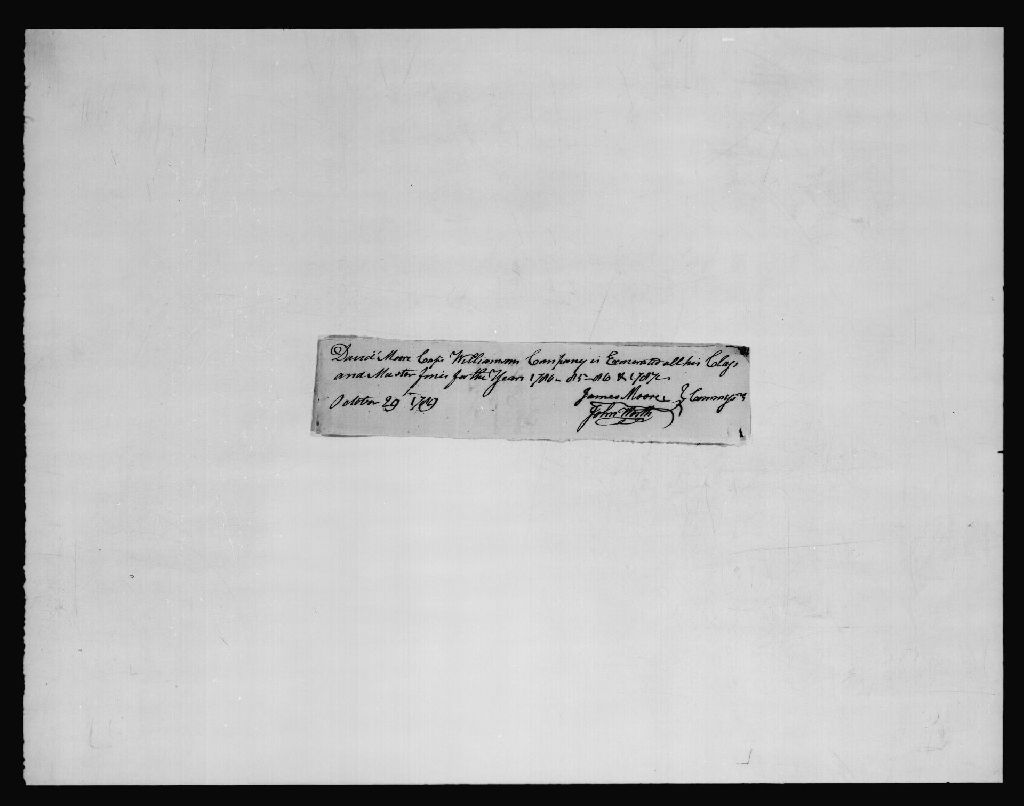 David Moore Capt Williamson Company is Exonorated all his Clas
and Muster fines for the Years 1784 - 85 - 86 & 1787
October 29th 1789 James Moore } Commissrs
John North